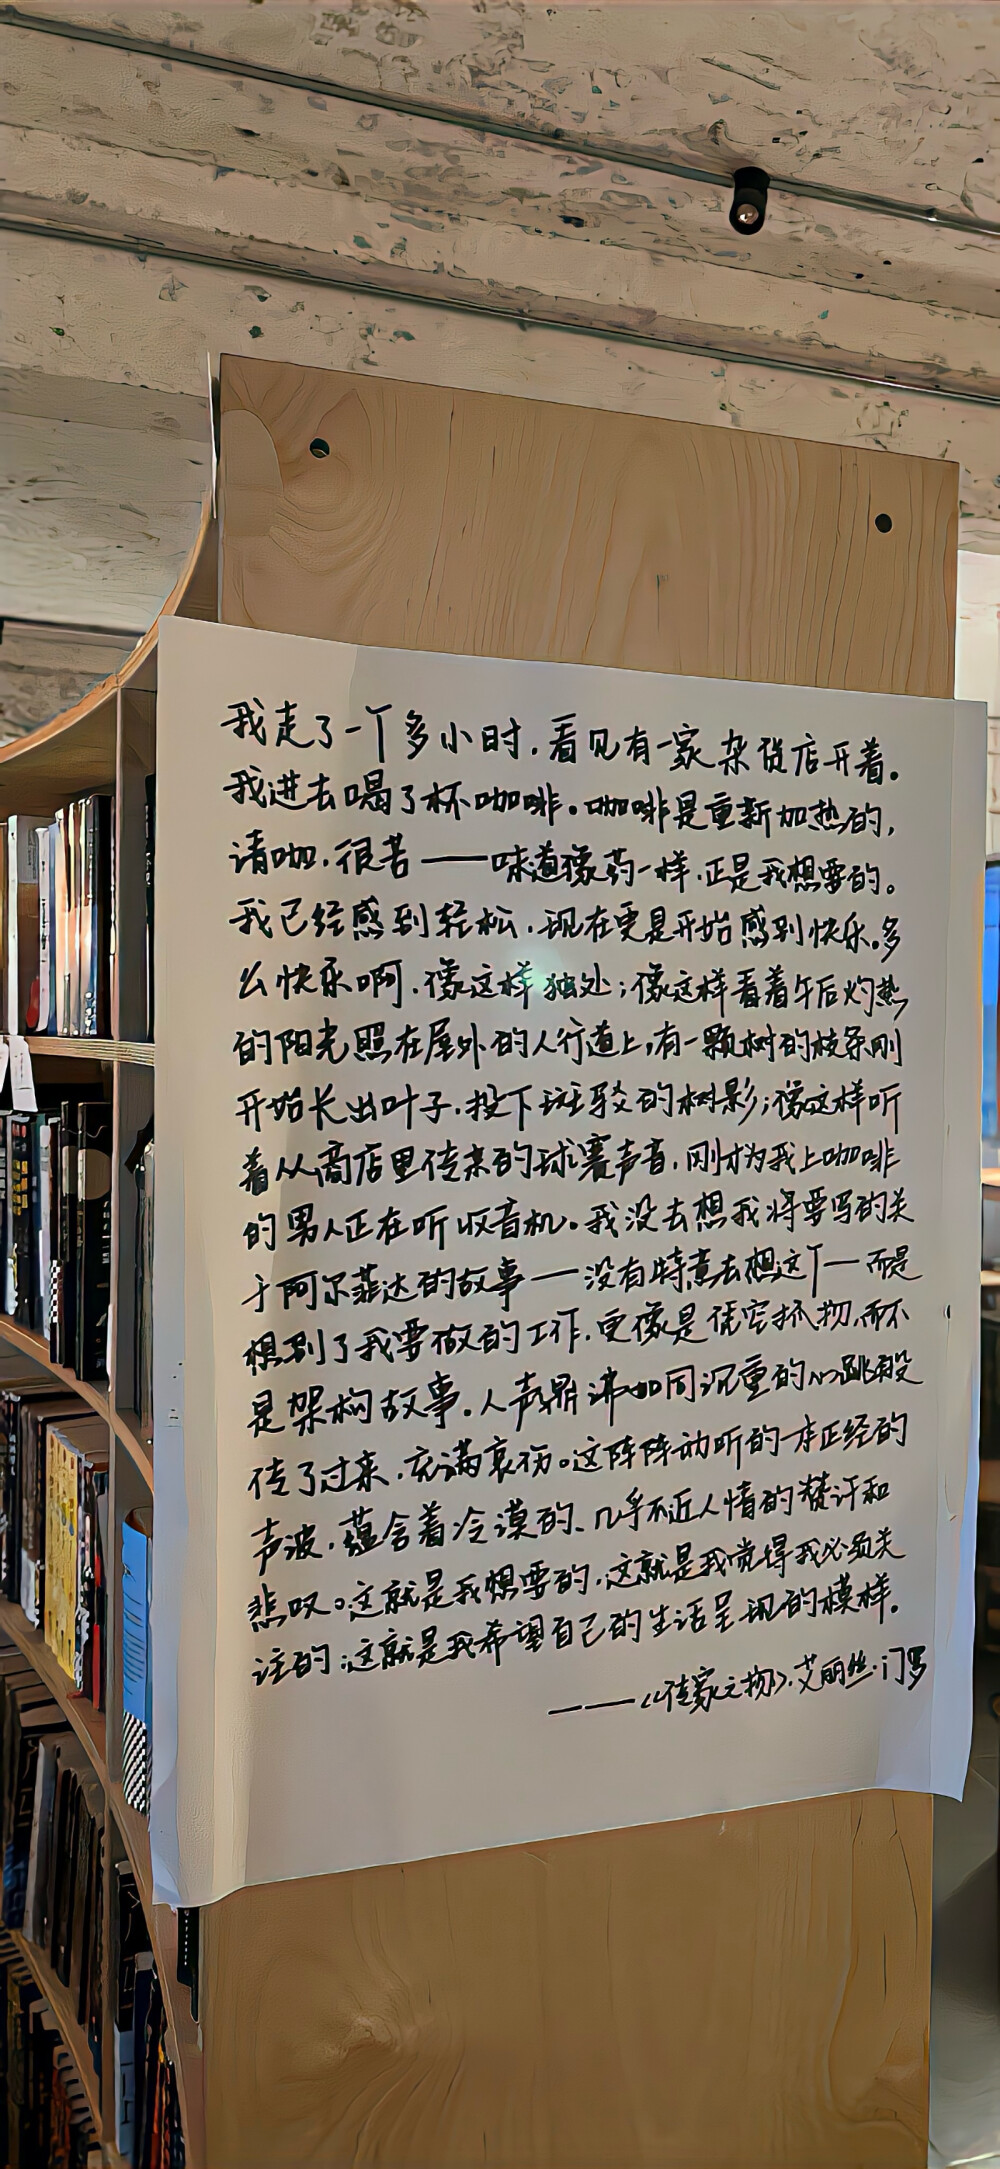 我走了一个多小时，看见有一家杂货店开着。
我进去喝了杯咖啡。咖啡是重新加热的，
清咖，很苦——味道像药一样，正是我想要的。
我已经感到轻松，现在更是开始感到快乐。多
么快乐啊，像这样独处；像这样看着午后灼热
的阳光照在屋外的人行道上，有一颗树的枝条刚
开始长出叶子，投下斑驳的树影；像这样听
着从商店里传来的球赛声音，刚才为我上咖啡
的男人正在听收音机。我没去想我将要写的关
于阿尔菲达的故事——没有特意去想这个——而是
想到了我要做的工作，更像是凭空抓物，而不
是架构故事。人声鼎沸如同沉重的心跳般
传了过来，充满哀伤。这阵阵动听的一本正经的
声波，蕴含着冷漠的、几乎不近人情的赞许和
悲叹。这就是我想要的，这就是我觉得我必须关
注的；这就是我希望自己的生活呈现的模样。
———《传家之物》·艾丽丝·门罗